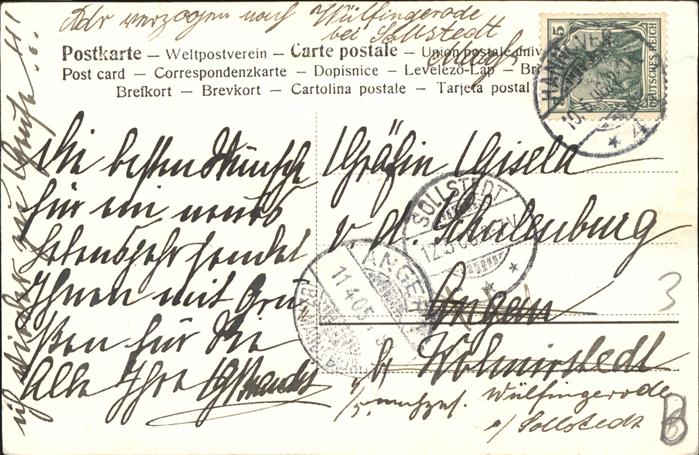 Adr verzogen nach Wülfingerode
bei Sollstedt
Postkarte – Weltpostverein – Carte postale – Union postale univ
Post card – Correspondenzkarte – Dopisnice – Levelező-Lap – Br
Brefkort – Brevkort – Cartolina postale – Tarjeta postal
DEUTSCHES REICH
5
HANNOVER
Die besten Wünsche
für ein neues
Lebensjahr sendet
Ihnen mit Grü
ßen für Sie
Alle Ihre
Gräfin Gisela
v. d. Schulenburg
Angern
b/ Wolmirstedt
Wülfingerode
b/ Sollstedt
SOLLSTEDT
12.5.06
ANGER
11.4.05
3
B